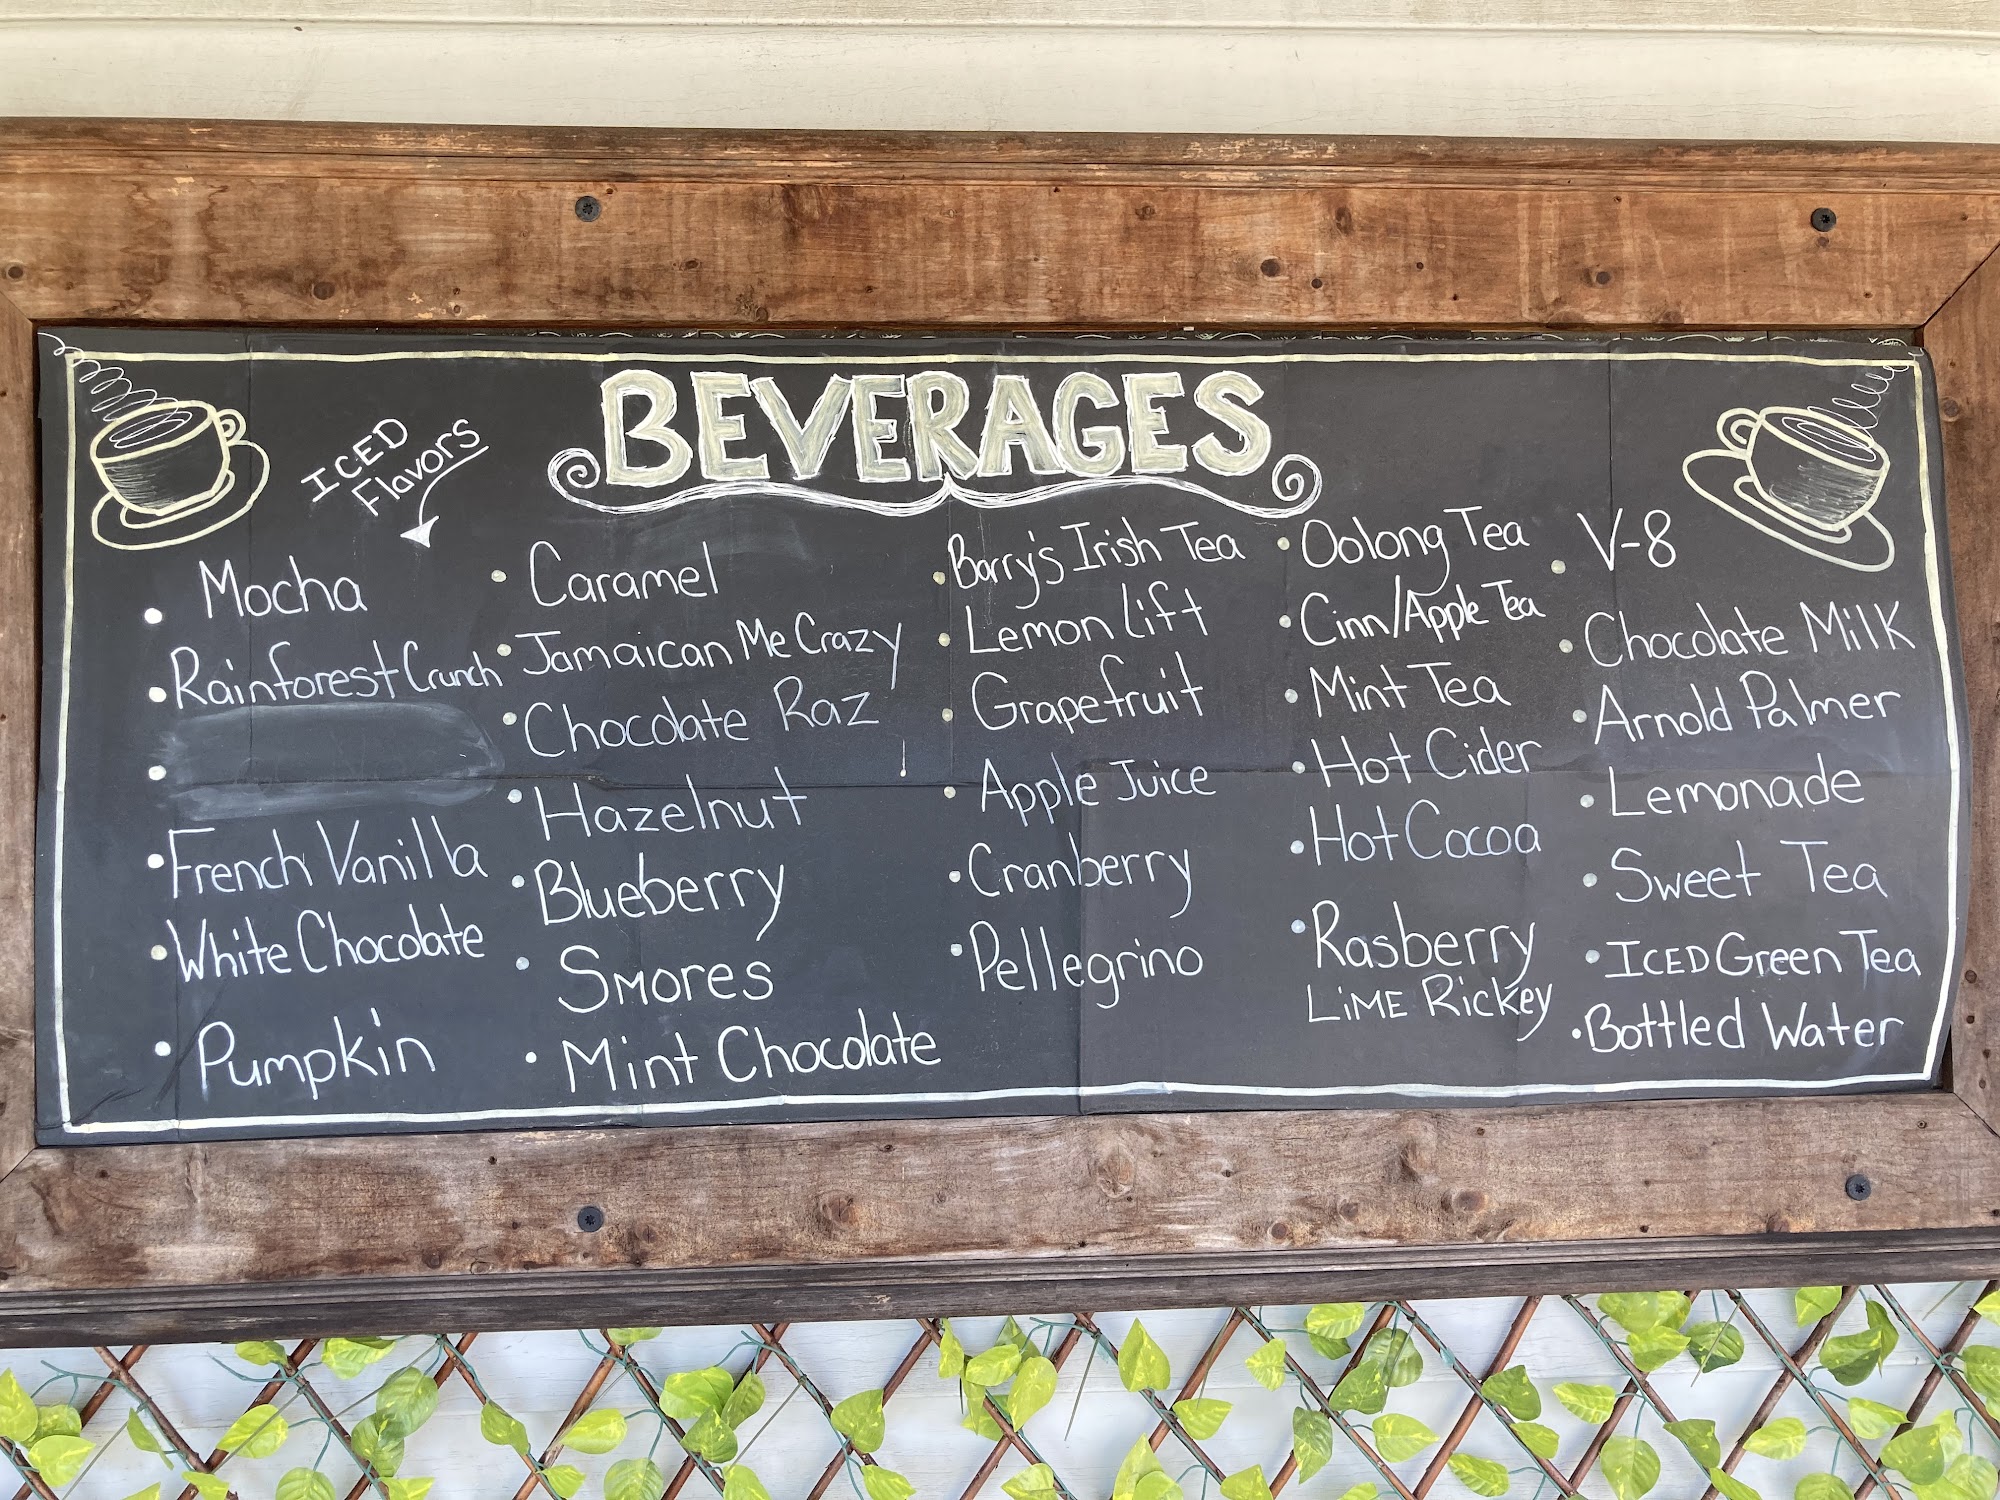 BEVERAGES
ICED
Flavors
Mocha
Rainforest Crunch
French Vanilla
White Chocolate
Pumpkin
Caramel
Jamaican Me Crazy
Chocolate Raz
Hazelnut
Blueberry
Smores
Mint Chocolate
Barry's Irish Tea
Lemon Lift
Grapefruit
Apple Juice
Cranberry
Pellegrino
Oolong Tea
Cinn/Apple Tea
Mint Tea
Hot Cider
Hot Cocoa
Rasberry
LiME RicKey
V-8
Chocolate Milk
Arnold Palmer
Lemonade
Sweet Tea
ICED Green Tea
Bottled Water